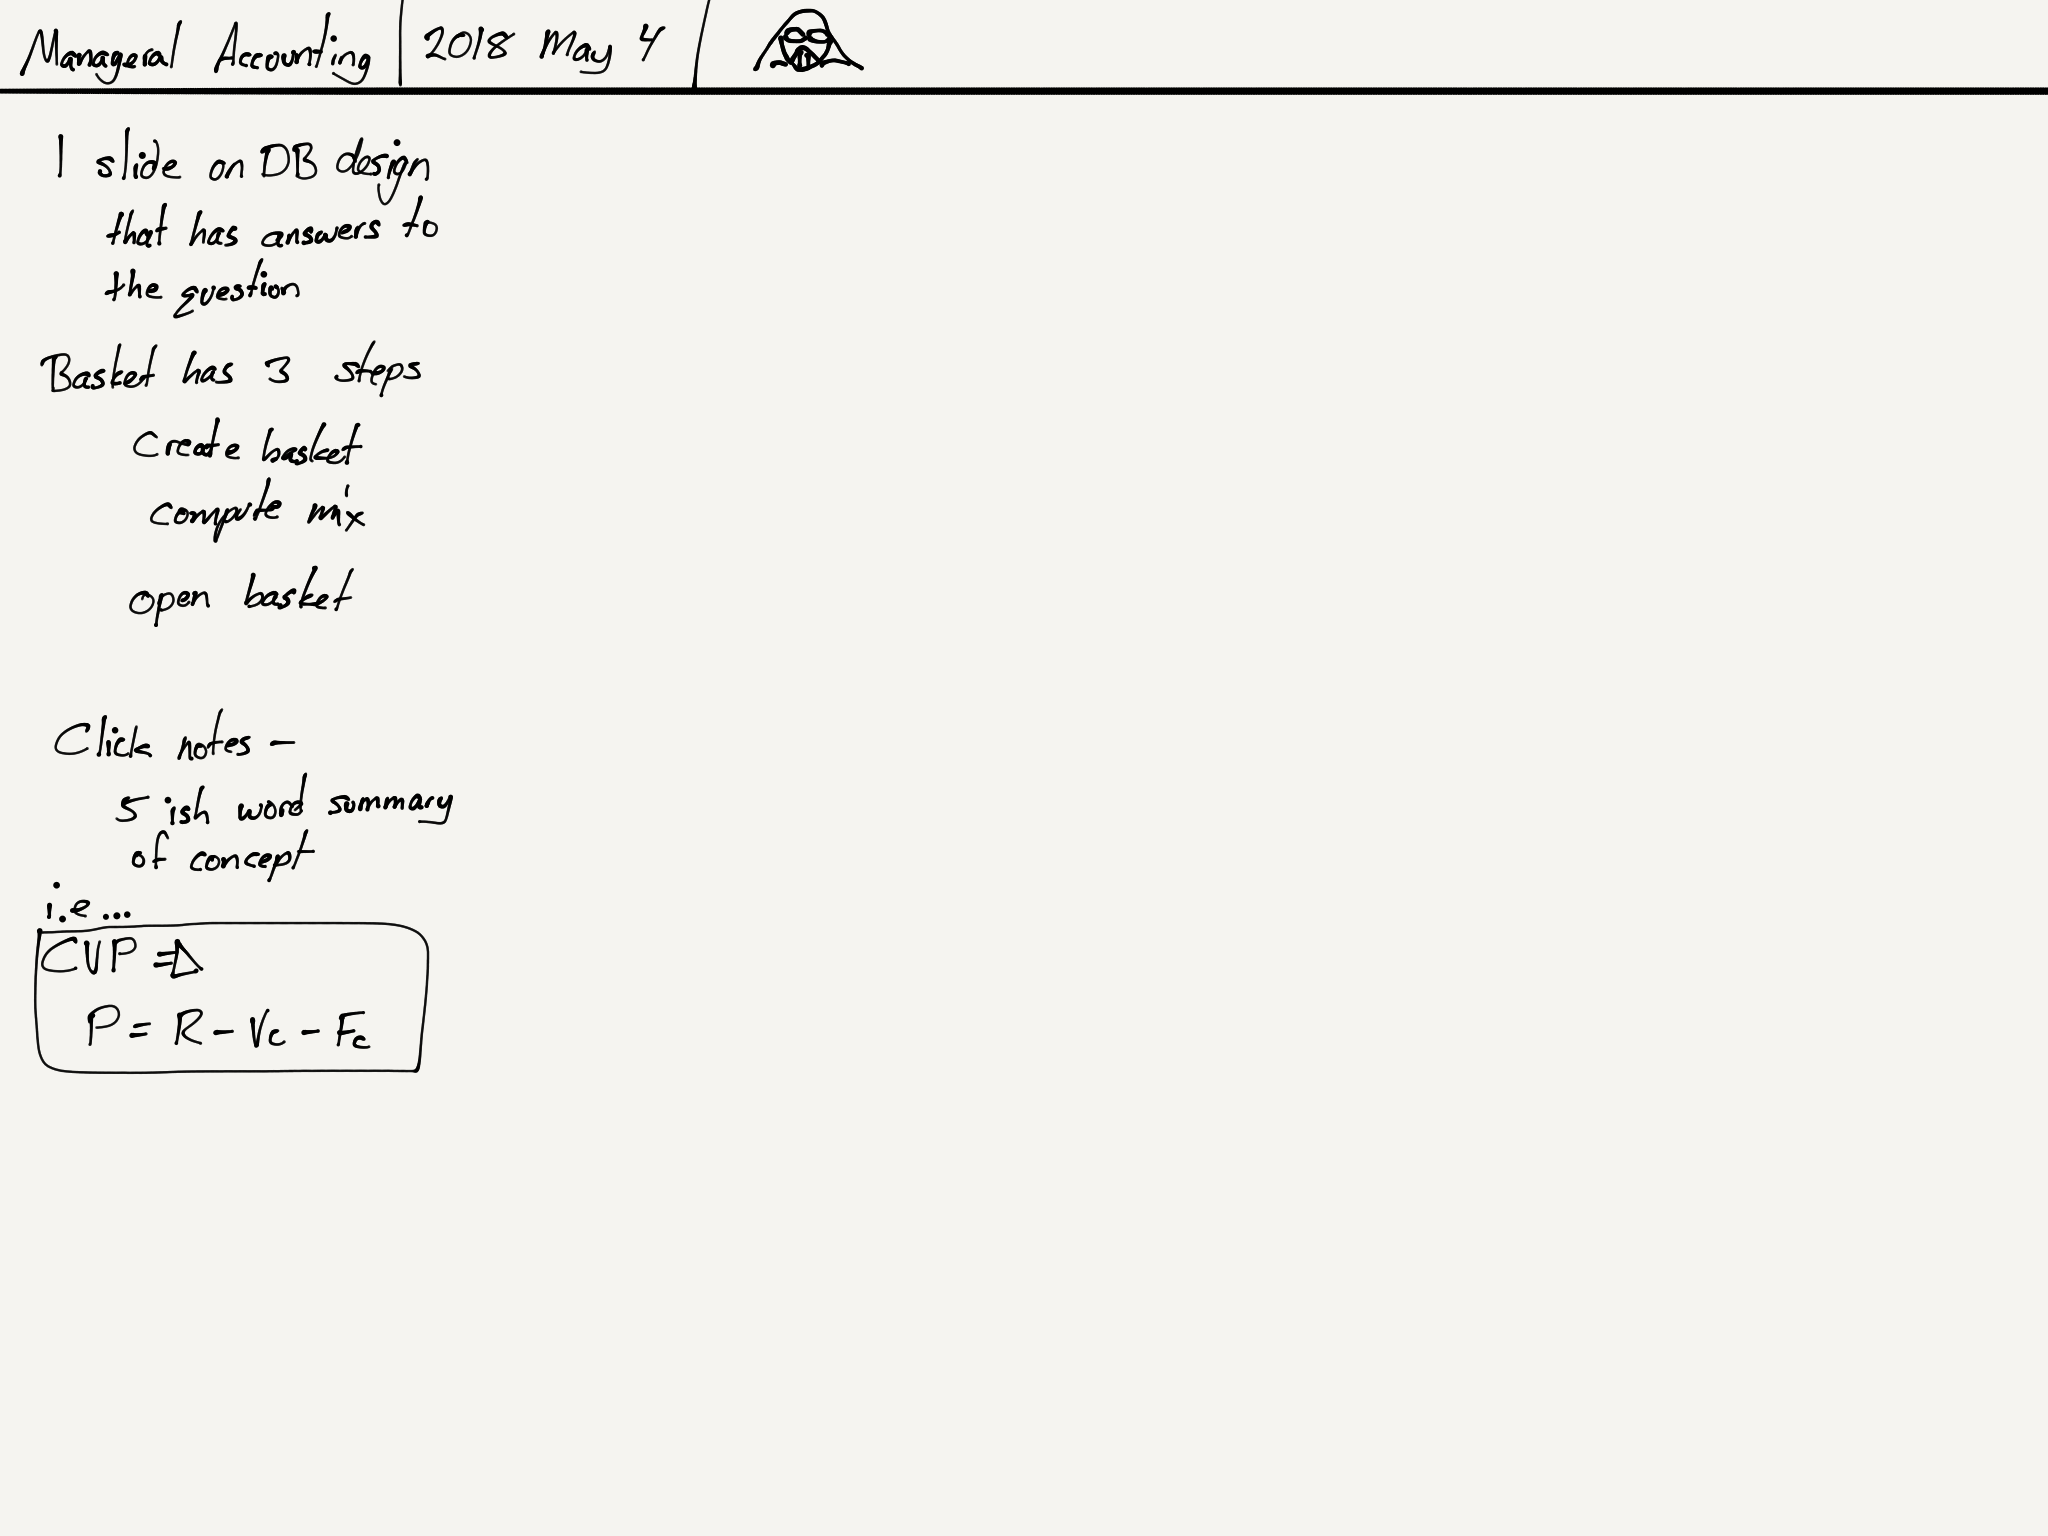 Manageral Accounting | 2018 May 4
1 slide on DB design
that has answers to
the question
Basket has 3 steps
Create basket
compute mix
open basket
Click notes -
5 ish word summary
of concept
i.e...
CVP ⇒
P = R - Vc - Fc